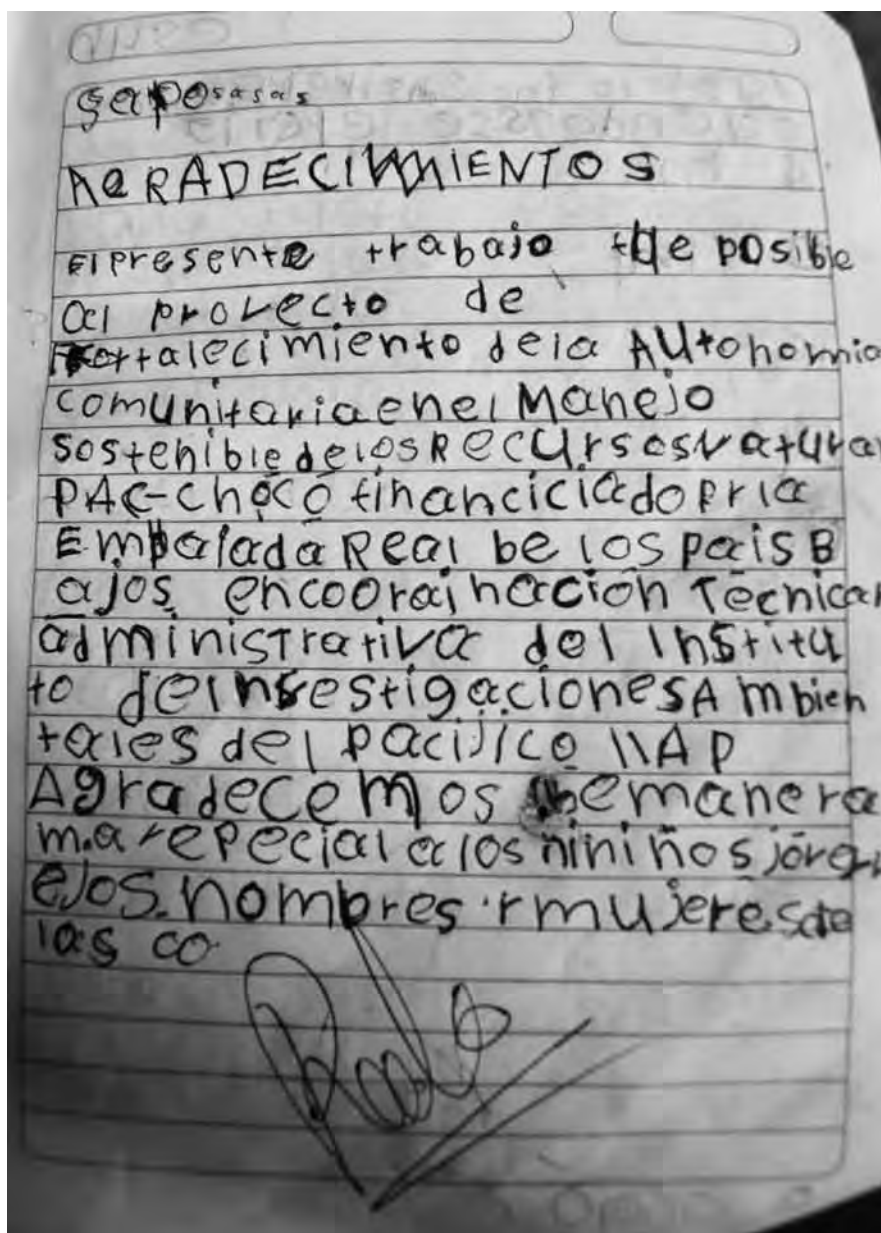 Saposasas
AGRADECIMIENTOS
El presente trabajo fue posible
al provecto de
Fortalecimiento dela AUtohomia
comunitaria en el Manejo
sostenible de los RecUrsosNatura
PAC-chocó financiciado pr la
Embalada Real be los pais B
ajos en coorainación Técnica
administrativa del Institu
to de Investigaciones Ambien
tales del pacijico IIAP
Agradecemos de manera
m.ar epecial a los niniños jóre
ejos. hombres r mujeres de
las co